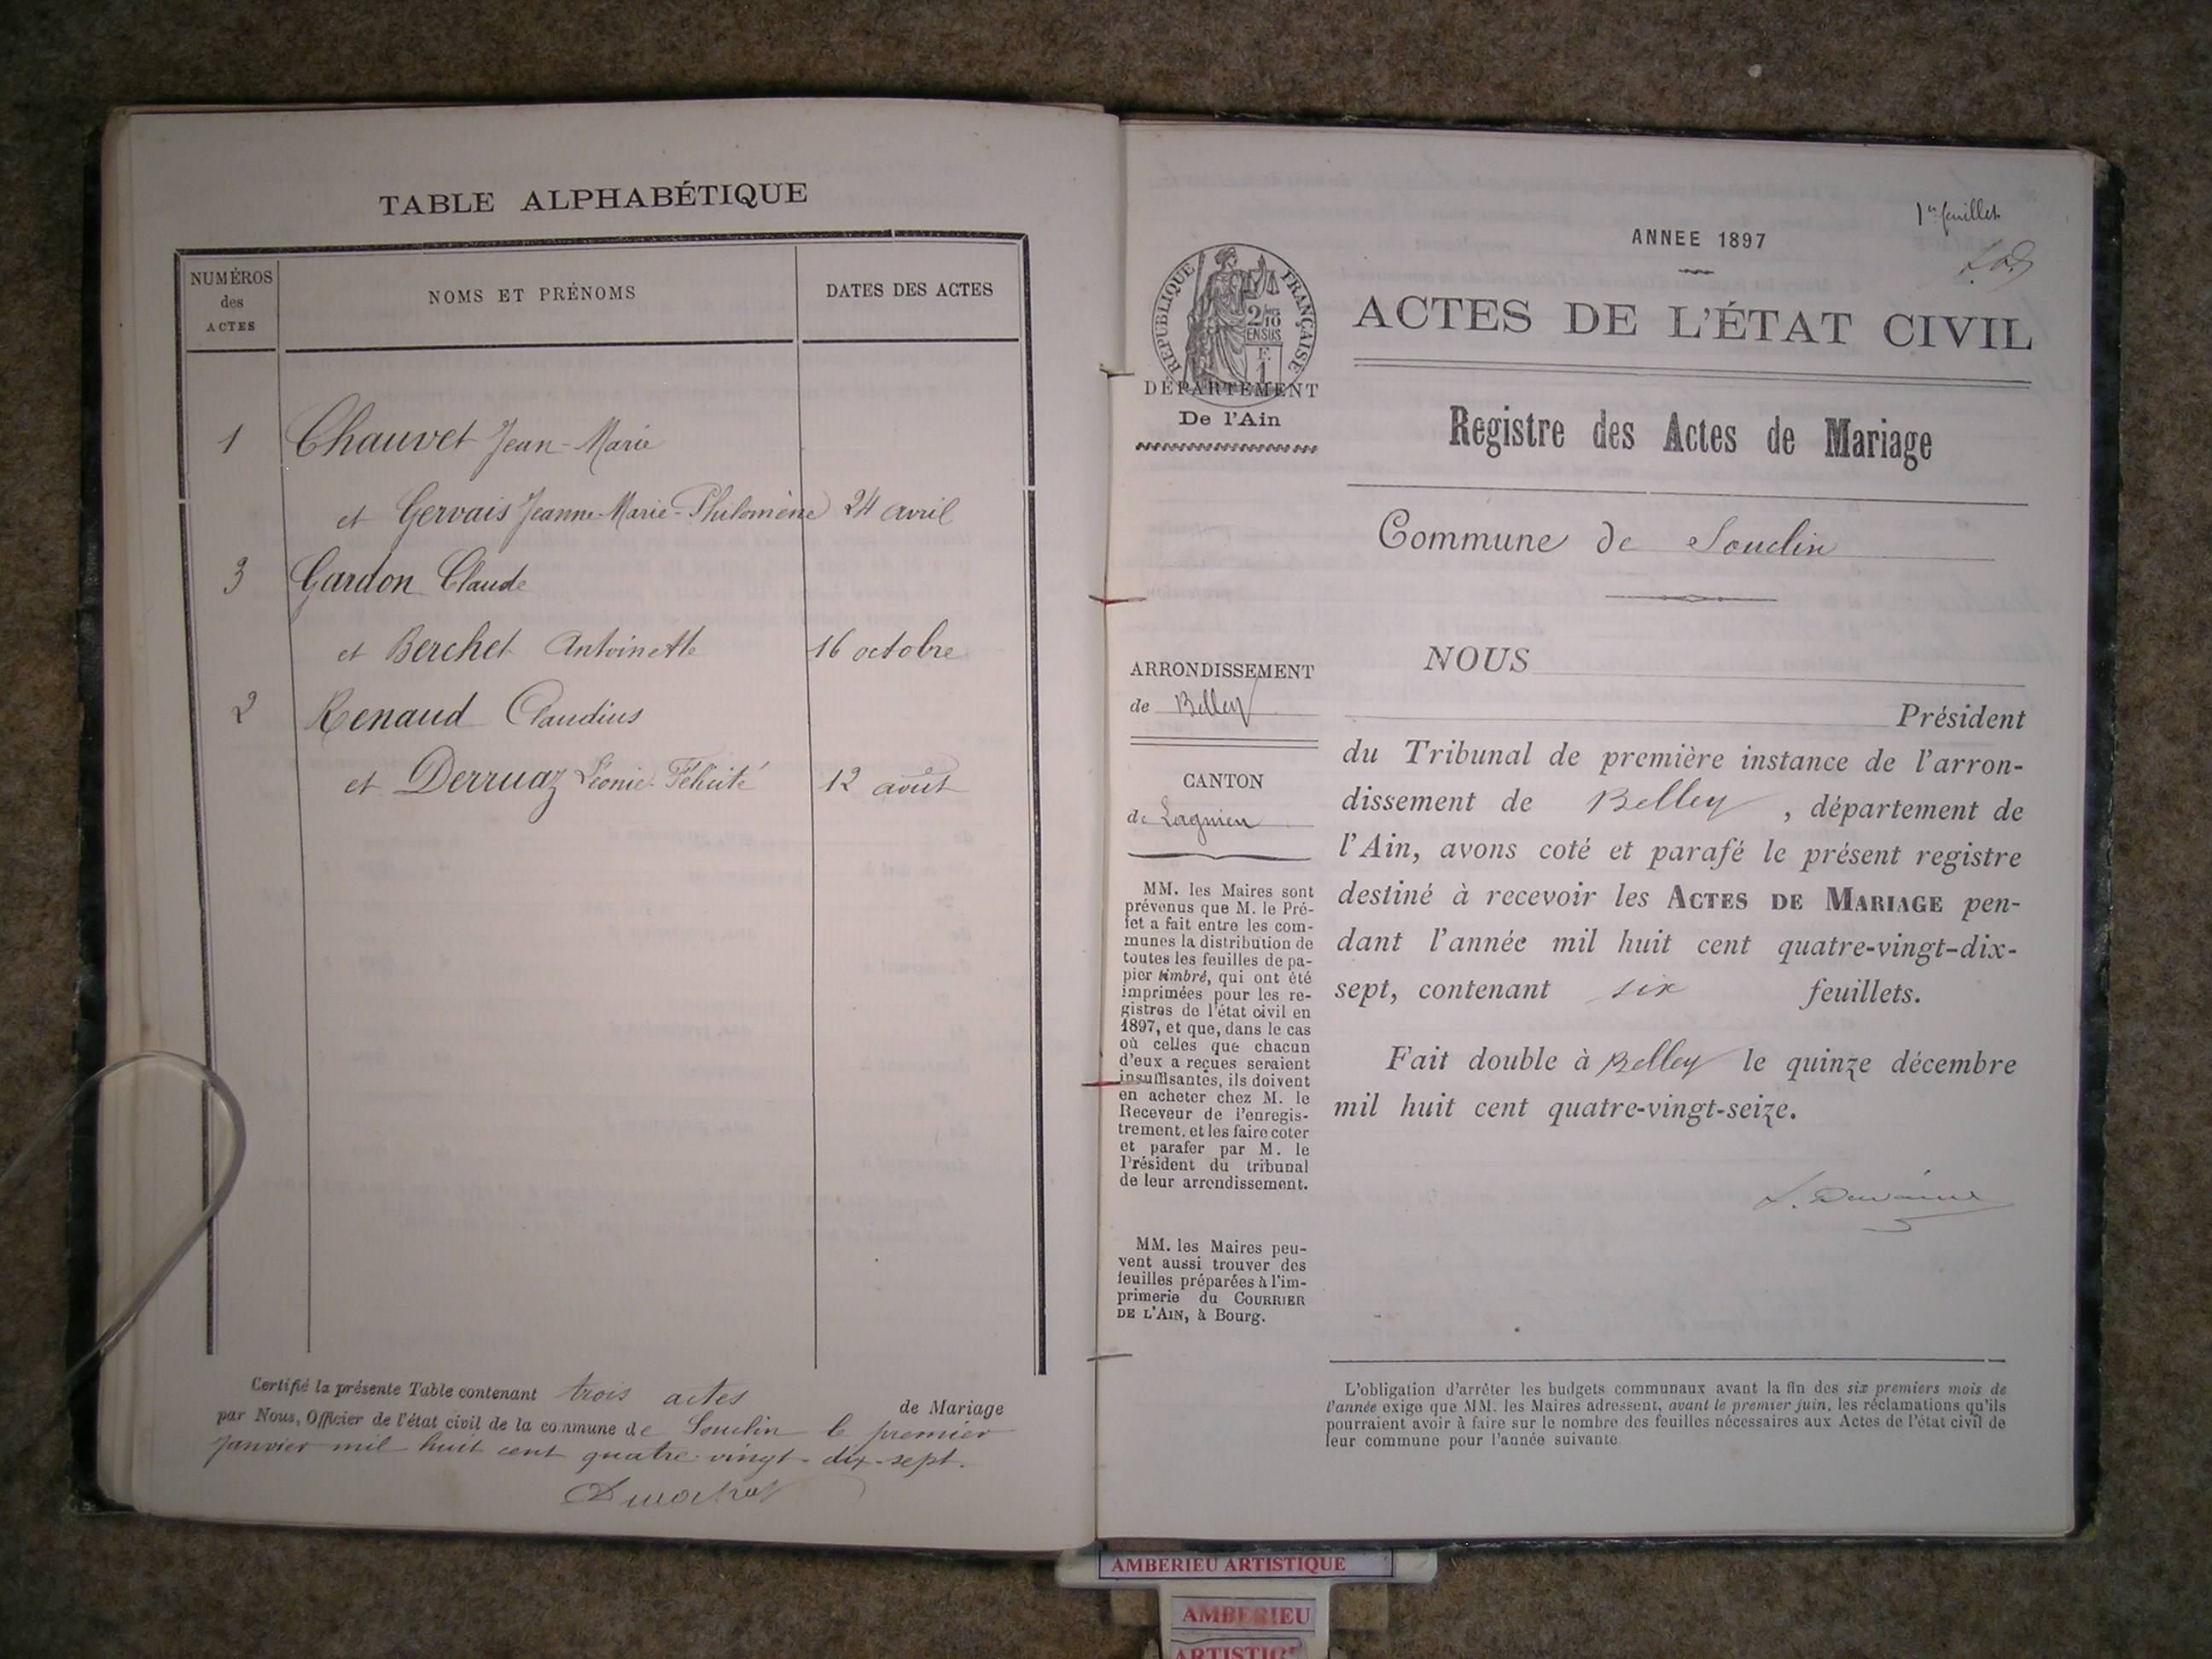 TABLE ALPHABÉTIQUE
NUMÉROS
des
ACTES
NOMS ET PRÉNOMS
DATES DES ACTES
1 Chauvet Jean-Marie
et Gervais Jeanne-Marie-Philomène 24 avril
3 Gardon Claude
et Berchet Antoinette 16 octobre
2 Renaud Claudius
et Derruaz Léonie-Félicité 12 août
Certifié la présente Table contenant trois actes de Mariage
par Nous, Officier de l'état civil de la commune de Souclin le premier
Janvier mil huit cent quatre-vingt-dix-sept.
1er feuillet
ANNEE 1897
RÉPUBLIQUE FRANÇAISE
2/10
EN SUS
F.
1
DÉPARTEMENT
De l'Ain
ACTES DE L'ÉTAT CIVIL
Registre des Actes de Mariage
Commune de Souclin
ARRONDISSEMENT
de Belley
CANTON
de Lagnieu
MM. les Maires sont
prévenus que M. le Pré-
fet a fait entre les com-
munes la distribution de
toutes les feuilles de pa-
pier timbré, qui ont été
imprimées pour les re-
gistres de l'état civil en
1897, et que, dans le cas
où celles que chacun
d'eux a reçues seraient
insuffisantes, ils doivent
en acheter chez M. le
Receveur de l'enregis-
trement, et les faire coter
et parafer par M. le
Président du tribunal
de leur arrondissement.
MM. les Maires peu-
vent aussi trouver des
feuilles préparées à l'im-
primerie du COURRIER
DE L'AIN, à Bourg.
NOUS
Président
du Tribunal de première instance de l'arron-
dissement de Belley, département de
l'Ain, avons coté et parafé le présent registre
destiné à recevoir les ACTES DE MARIAGE pen-
dant l'année mil huit cent quatre-vingt-dix-
sept, contenant six feuillets.
Fait double à Belley le quinze décembre
mil huit cent quatre-vingt-seize.
L'obligation d'arrêter les budgets communaux avant la fin des six premiers mois de
l'année exige que MM. les Maires adressent, avant le premier juin, les réclamations qu'ils
pourraient avoir à faire sur le nombre des feuilles nécessaires aux Actes de l'état civil de
leur commune pour l'année suivante
AMBERIEU ARTISTIQUE
AMBERIEU
ARTISTIQUE